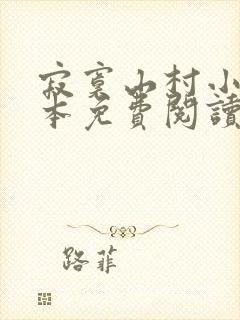 寂寞山村小
本免費閱讀
路菲